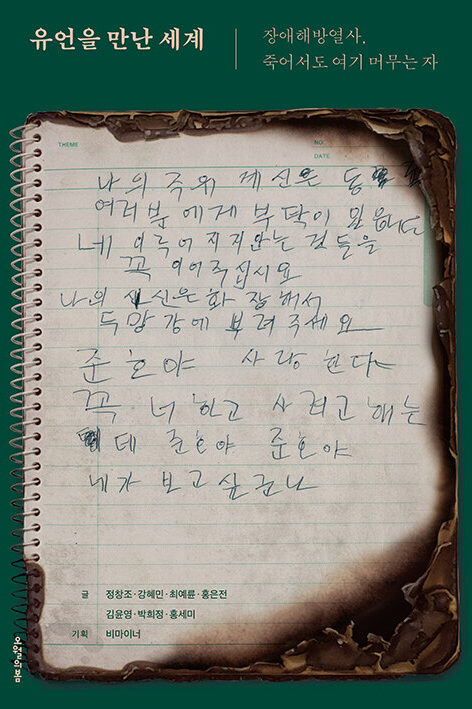 유언을 만난 세계
장애해방열사,
죽어서도 여기 머무는 자
THEME
NO.
DATE
나의 주위 계신은
여러분에게 부탁이 있읍니다
네 이루어지지안는 것들을
꼭 이어주십시요
나의 시신은 화장해서
두망강에 보려주세요
준호야 사랑한다
꼭 너하고 사려고 해는
데 준호야 준호야
네가 보고싶군나
글 정창조·강혜민·최예륜·홍은전
김윤영·박희정·홍세미
기획 비마이너
오월의봄